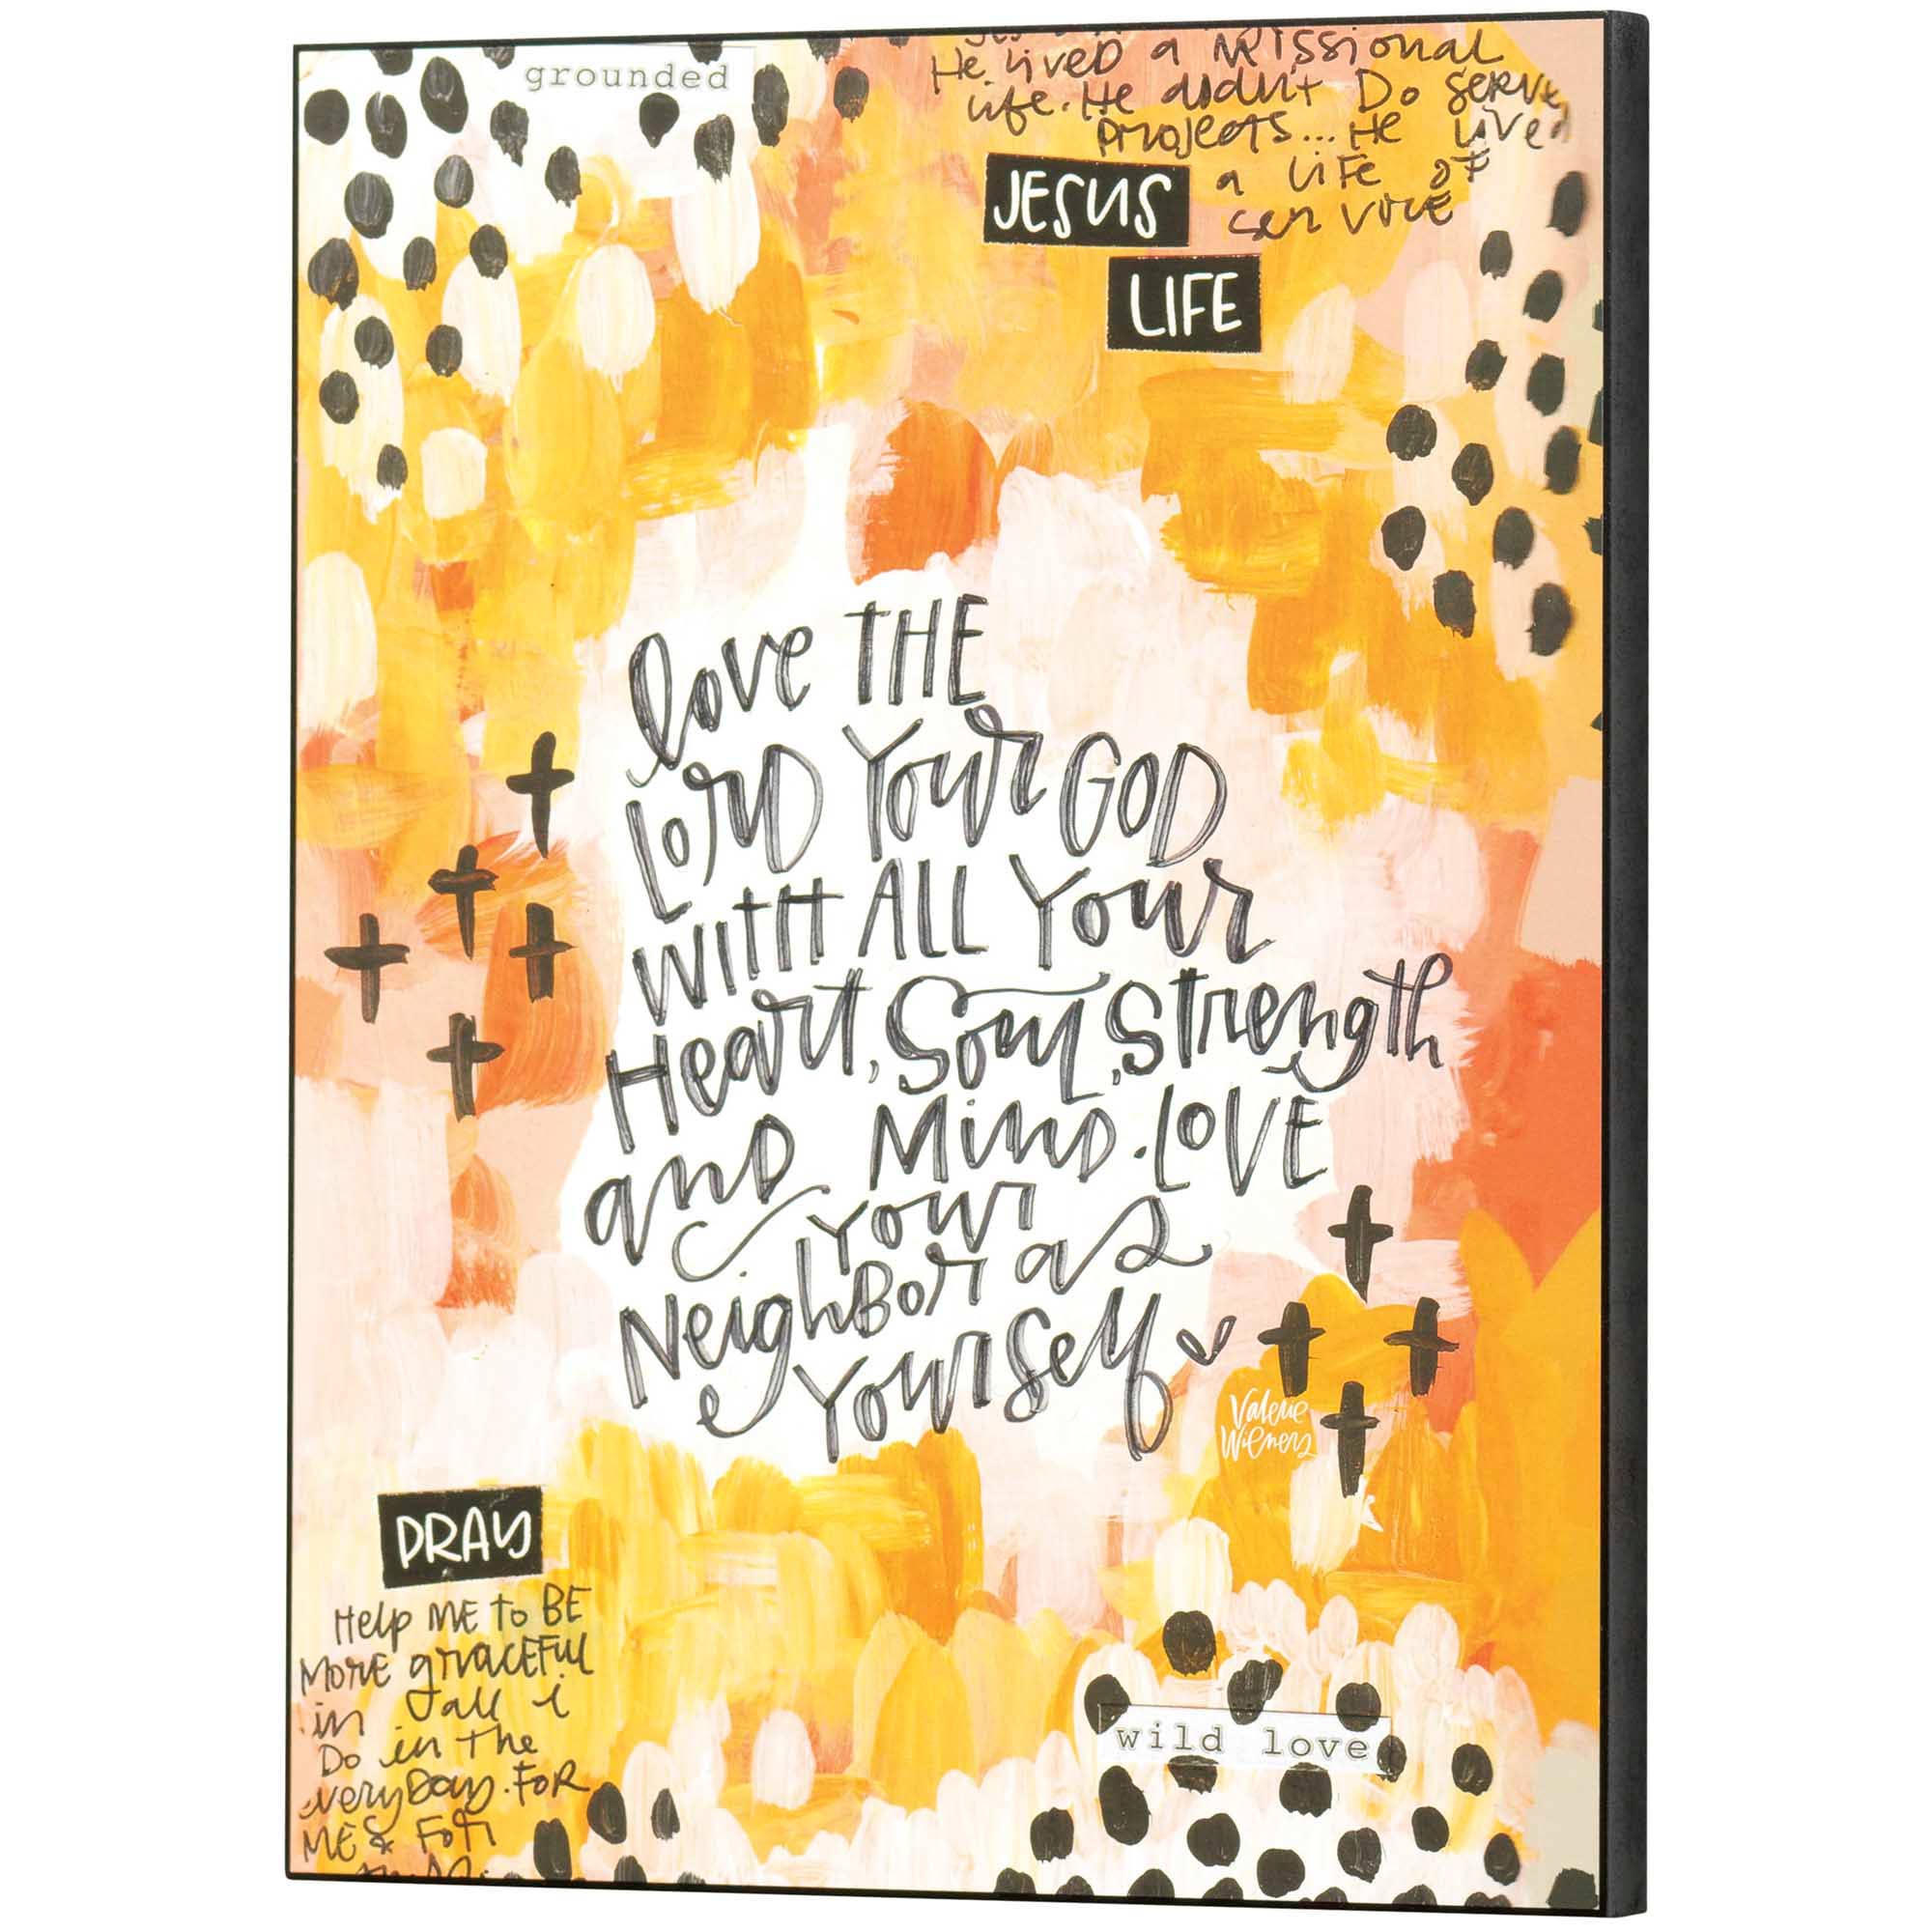 grounded
He lived a missional
life. He didn't Do serve
projects... He lived
a life of
service
JESUS
LIFE
love THE
LorD Your GOD
WITH ALL Your
Heart, Soul, Strength
and Mind. LOVE
Your
NeighBor as
Yourself
Valerie
Wieners
PRAY
Help ME to BE
MORE graceFul
in all i
Do in the
everyDay. FOR
ME & For
wild love